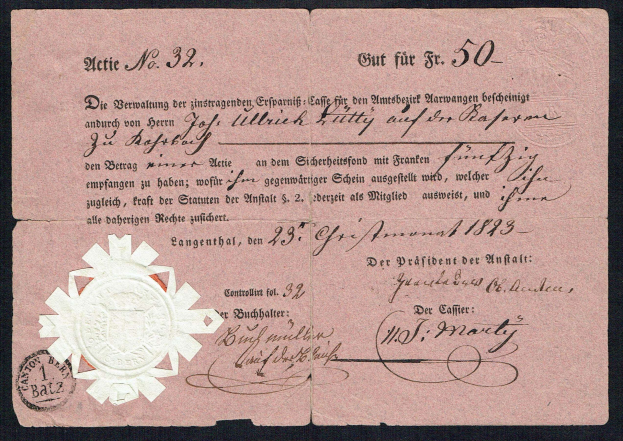 Actie No. 32.
Gut für Fr. 50—
Die Verwaltung der zinstragenden Ersparniß-Casse für den Amtsbezirk Aarwangen bescheinigt
andurch von Herrn Joh. Ullrich Lüthy auf der
zu Rohrbach
den Betrag einer Actie an dem Sicherheitsfond mit Franken fünfzig
empfangen zu haben; wofür ihm gegenwärtiger Schein ausgestellt wird, welcher ihn
zugleich, kraft der Statuten der Anstalt §. 2. jederzeit als Mitglied ausweist, und ihme
alle daherigen Rechte zusichert.
Langenthal, den 23n Christmonat 1823—
Der Präsident der Anstalt:
Controllirt fol. 32
Der Buchhalter:
Buchmüller
Der Cassier:
J: Marty
CANTON BERN
1
Batz